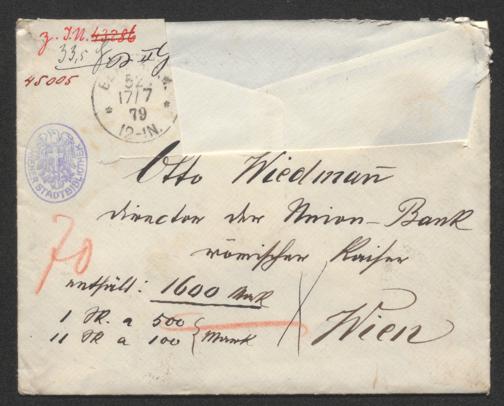 z. I.N. 43286
33,5 g
45005
52.
17/7
79
12-1N.
WIENER STADTBIBLIOTHEK
Otto Wiedmann̄
director der Union-Bank
römischer Kaiser
70
enthält: 1600 Mark
1 St. a 500
11 St. a 100 } Mark
Wien